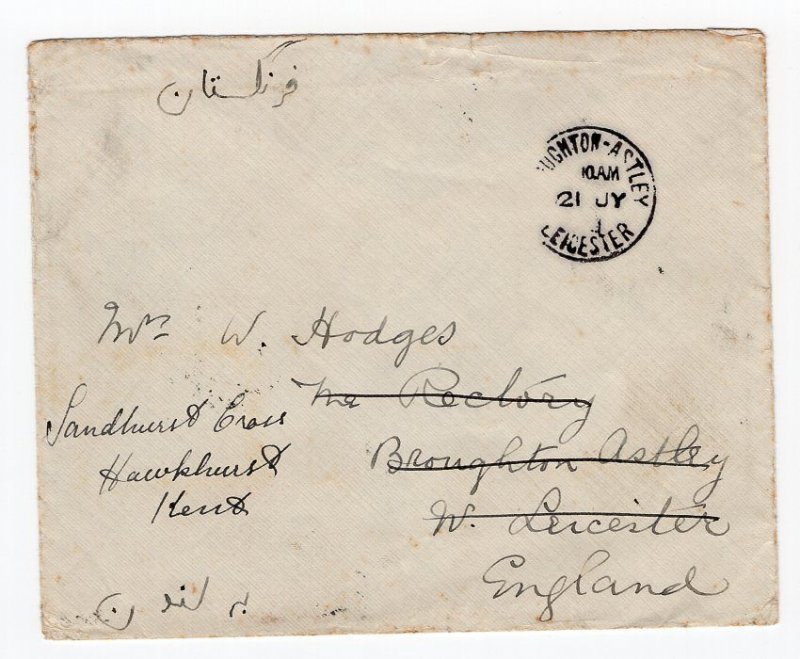 فرنگستان
UGHTON-ASTLEY
10.AM
21 JY
LEICESTER
Mrs W. Hodges
The Rectory
Sandhurst Cross
Broughton Astley
Hawkhurst
W. Leicester
Kent
England
بر لندن